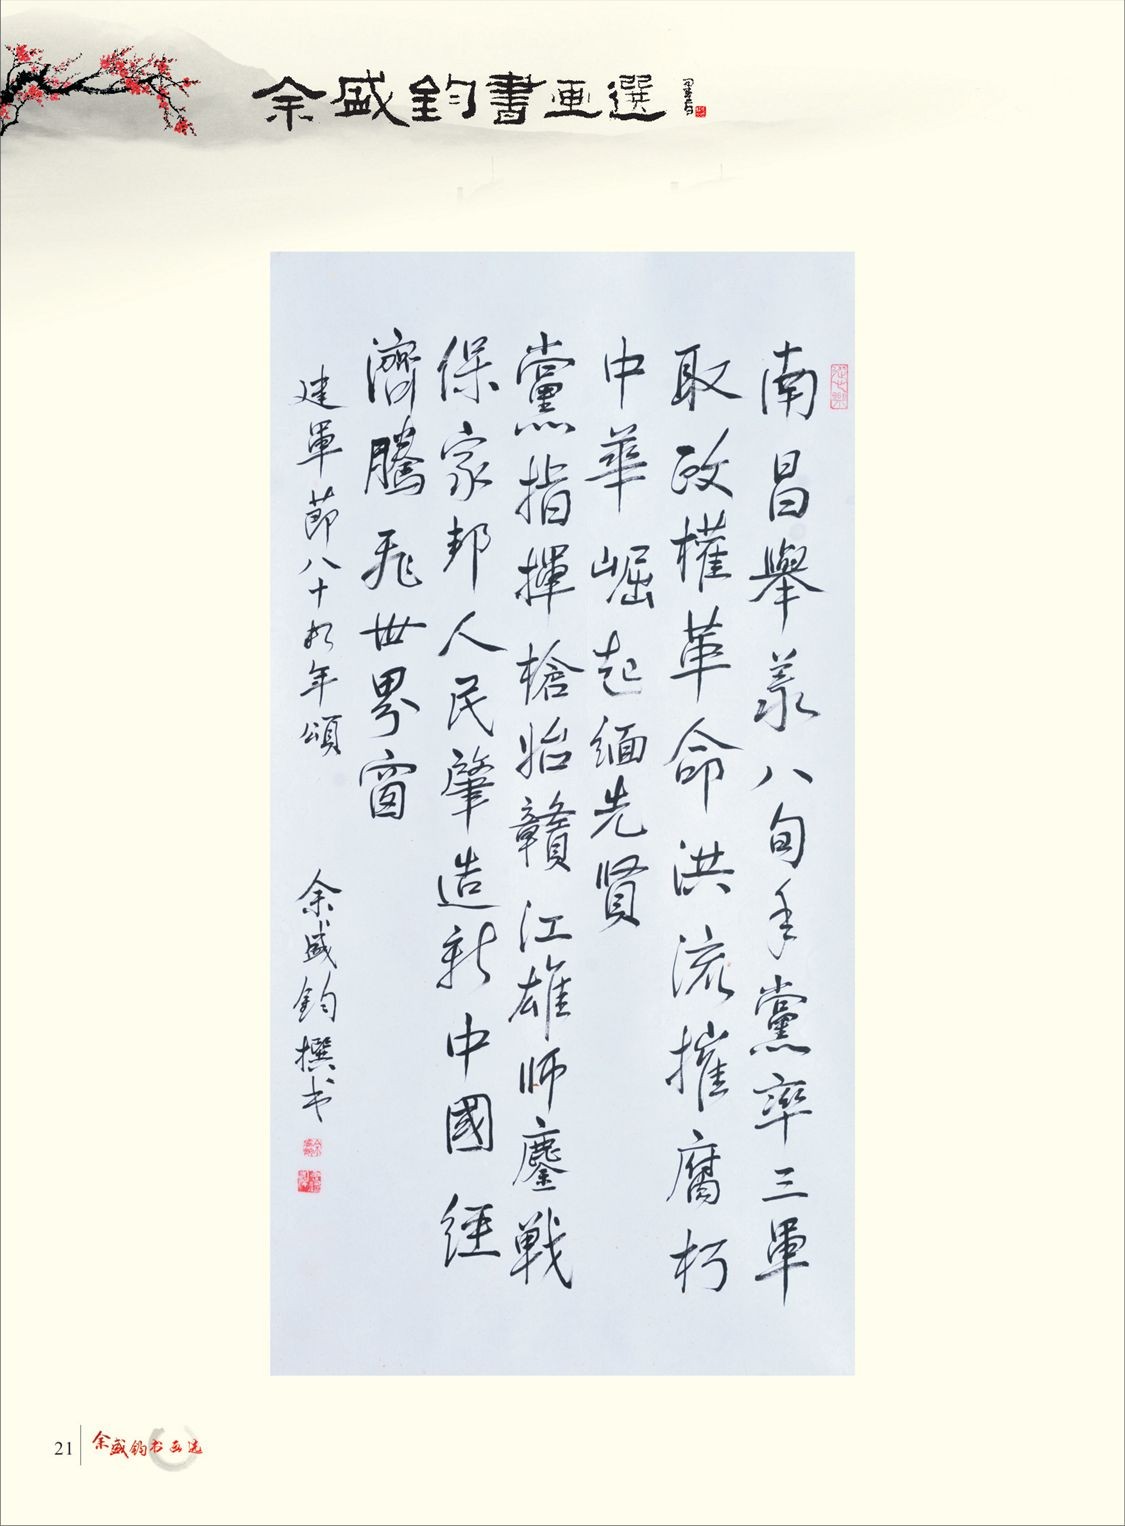 余盛鈞書画選
南昌舉义八旬年黨率三軍
取政權革命洪流摧腐朽
中華崛起缅先贤
黨指揮槍始贛江雄师鏖戰
保家邦人民肇造新中國經
濟騰飛世界窗
建軍節八十週年頌
余盛鈞撰书
21
余盛鈞书画选